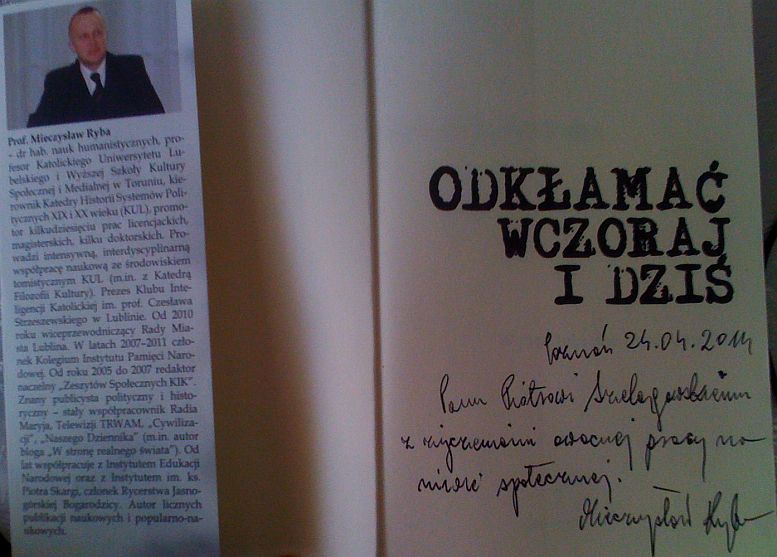 Prof. Mieczysław Ryba
- dr hab. nauk humanistycznych, pro-
fesor Katolickiego Uniwersytetu Lu-
belskiego i Wyższej Szkoły Kultury
Społecznej i Medialnej w Toruniu, kie-
rownik Katedry Historii Systemów Poli-
tycznych XIX i XX wieku (KUL), promo-
tor kilkudziesięciu prac licencjackich,
magisterskich, kilku doktorskich. Pro-
wadzi intensywną, interdyscyplinarną
współpracę naukową ze środowiskiem
tomistycznym KUL (m.in. z Katedrą
Filozofii Kultury). Prezes Klubu Inte-
ligencji Katolickiej im. prof. Czesława
Strzeszewskiego w Lublinie. Od 2010
roku wiceprzewodniczący Rady Mia-
sta Lublina. W latach 2007-2011 czło-
nek Kolegium Instytutu Pamięci Naro-
dowej. Od roku 2005 do 2007 redaktor
naczelny „Zeszytów Społecznych KIK”.
Znany publicysta polityczny i histo-
ryczny – stały współpracownik Radia
Maryja, Telewizji TRWAM, „Cywiliza-
cji”, „Naszego Dziennika” (m.in. autor
bloga „W stronę realnego świata”). Od
lat współpracuje z Instytutem Edukacji
Narodowej oraz z Instytutem im. ks.
Piotra Skargi, członek Rycerstwa Jasno-
górskiej Bogarodzicy. Autor licznych
publikacji naukowych i popularno-na-
ukowych.
ODKŁAMAĆ
WCZORAJ
I DZIŚ
Poznań 24.04.2014
Panu Piotrowi
z życzeniami owocnej pracy na
niwie społecznej.
Mieczysław Ryba